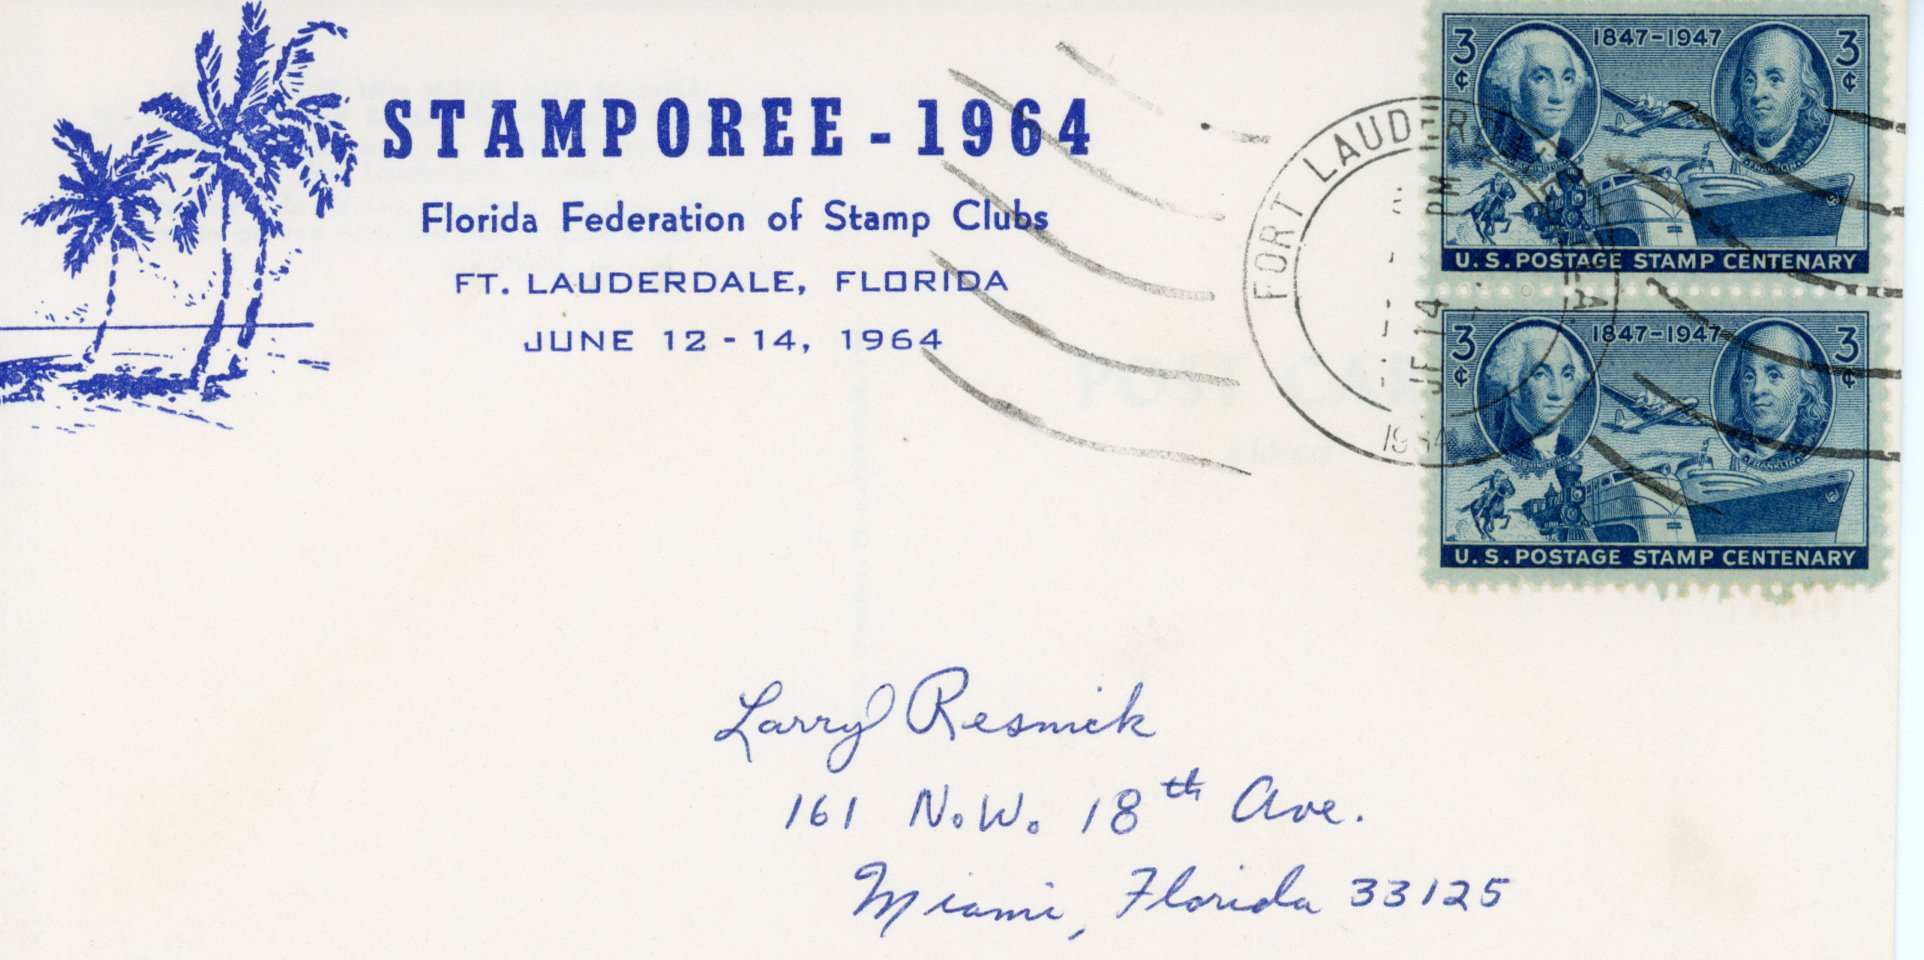 STAMPOREE - 1964
Florida Federation of Stamp Clubs
FT. LAUDERDALE, FLORIDA
JUNE 12 - 14, 1964
FORT LAUDERDALE FLA
PM
14
1964
3¢ 1847-1947 3¢
WASHINGTON FRANKLIN
U.S. POSTAGE STAMP CENTENARY
3¢ 1847-1947 3¢
WASHINGTON FRANKLIN
U.S. POSTAGE STAMP CENTENARY
POST
Larry Resnick
161 N.W. 18th Ave.
Miami, Florida 33125